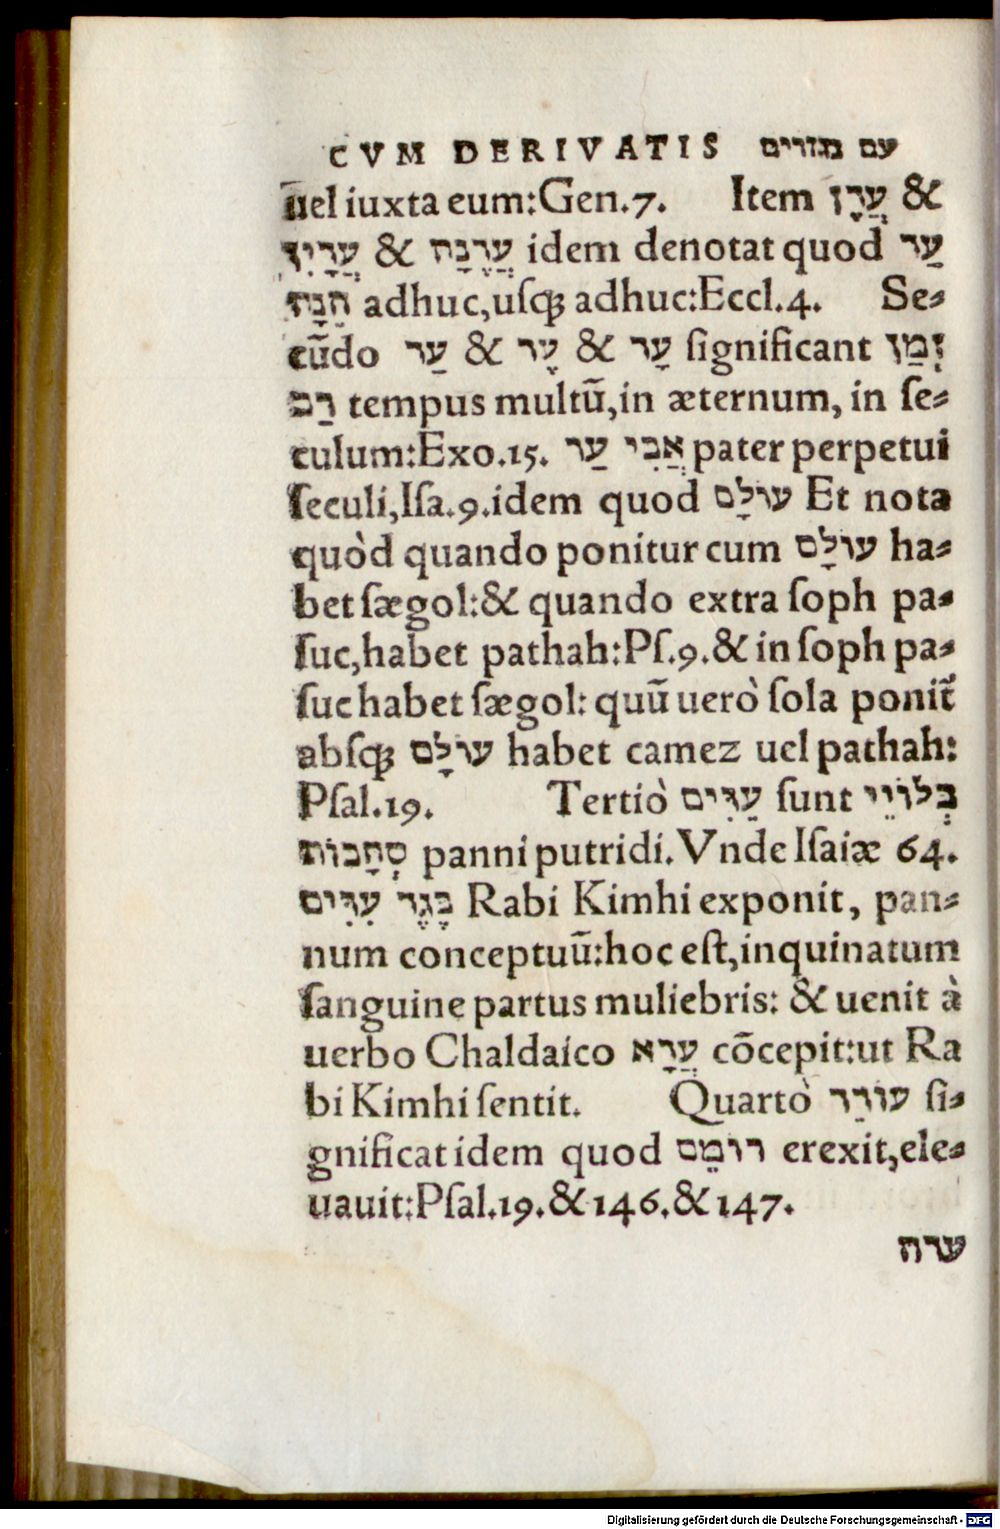 CVM DERIVATIS עם נגזרים
uel iuxta eum:Gen.7. Item עֲדָן &
עֲדָיִן & עֲדֶנָּה idem denotat quod עַד
הֵנָּה adhuc,uſq; adhuc:Eccl.4. Se⸗
cūdo עַד & עֶד & עָד ſignificant זְמַן
רַב tempus multū,in æternum, in ſe⸗
culum:Exo.15. אֲבִי עַד pater perpetui
ſeculi,Iſa.9.idem quod עוֹלָם Et nota
quòd quando ponitur cum עוֹלָם ha⸗
bet ſægol:& quando extra ſoph pa⸗
ſuc,habet pathah:Pſ.9.& in ſoph pa⸗
ſuc habet ſægol: quū uerò ſola ponit̃
abſq; עוֹלָם habet camez uel pathah:
Pſal.19. Tertiò עִדִּים ſunt בְּלוֹיֵי
סְחָבוֹת panni putridi. Vnde Iſaiæ 64.
בֶּגֶד עִדִּים Rabi Kimhi exponit, pan⸗
num conceptuū:hoc eſt,inquinatum
ſanguine partus muliebris: & uenit à
uerbo Chaldaico עֲדָא cōcepit:ut Ra
bi Kimhi ſentit. Quartò עוֹדֵד ſi⸗
gnificat idem quod רוֹמֵם erexit,ele⸗
uauit:Pſal.19.& 146.& 147.
ערה
Digitalisierung gefördert durch die Deutsche Forschungsgemeinschaft - DFG